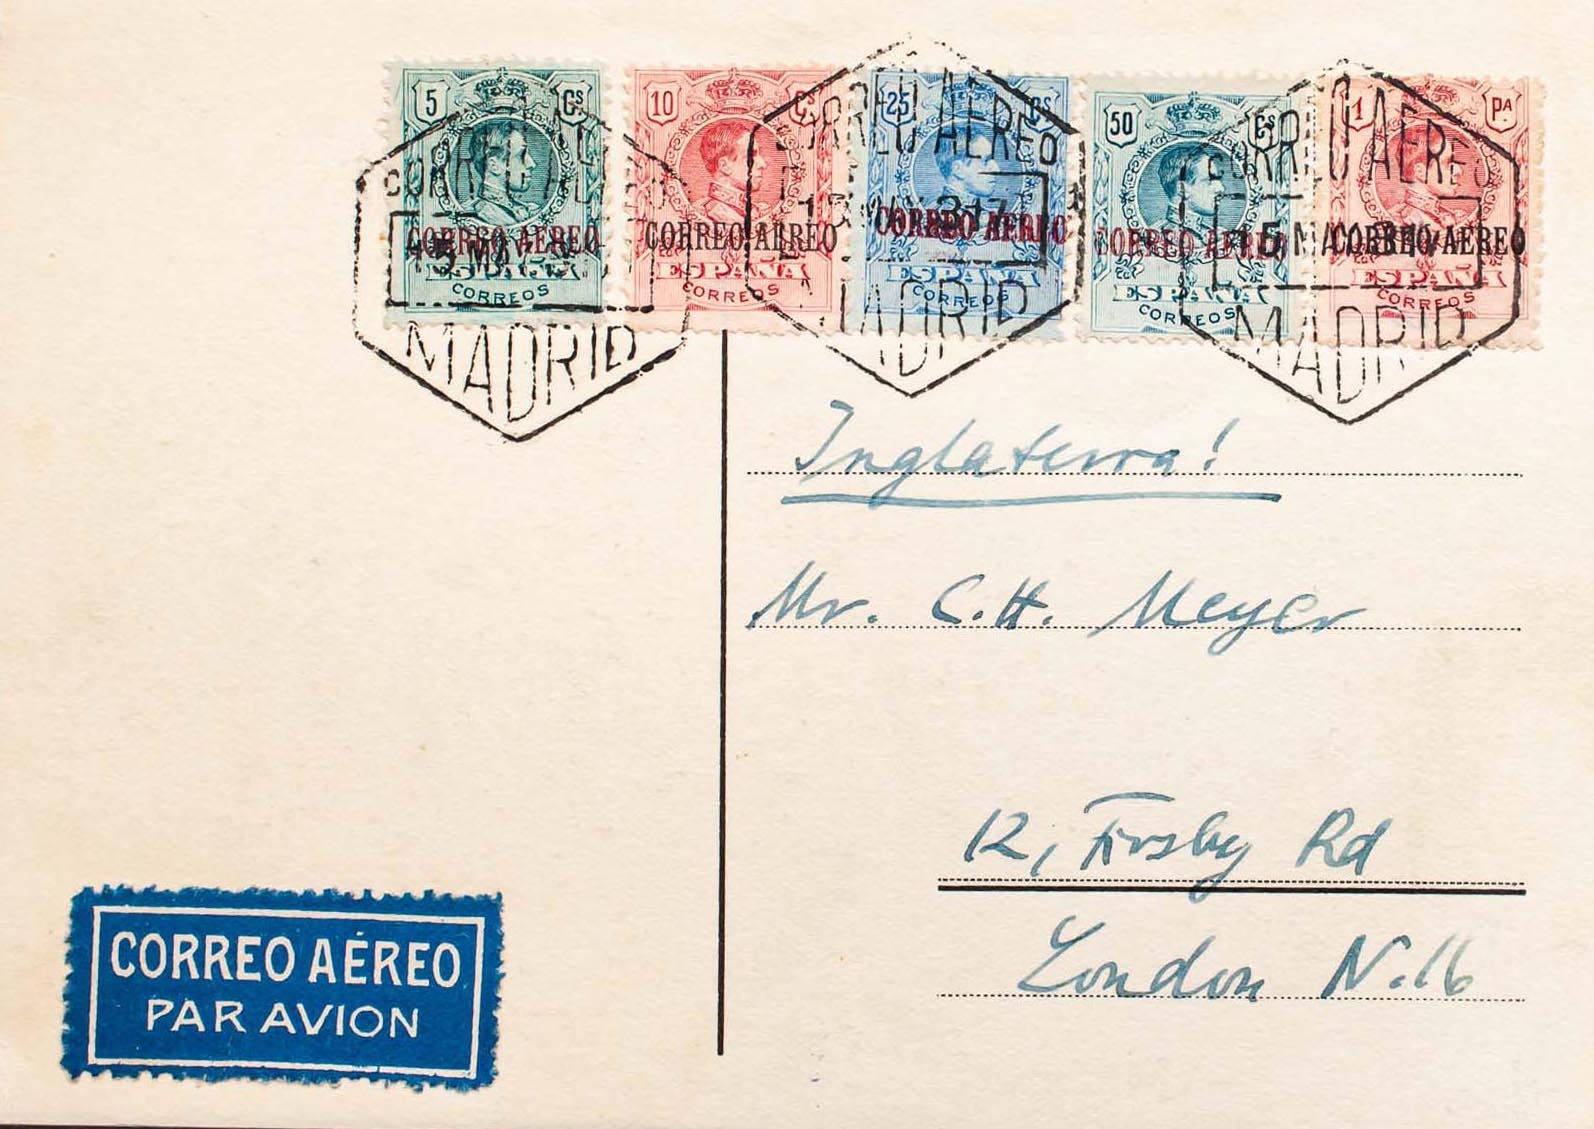 5 Cs
CORREO AEREO
ESPAÑA
CORREOS
10 Cs
CORREO AEREO
ESPAÑA
CORREOS
25 Cs
CORREO AEREO
ESPAÑA
CORREOS
50 Cs
CORREO AEREO
ESPAÑA
CORREOS
1 PA
CORREO AEREO
ESPAÑA
CORREOS
CORREO AEREO
MADRID
CORREO AEREO
MADRID
CORREO AEREO
MADRID
Inglaterra!
Mr. C. H. Meyer
12, Firsby Rd
London N.16
CORREO AÉREO
PAR AVION